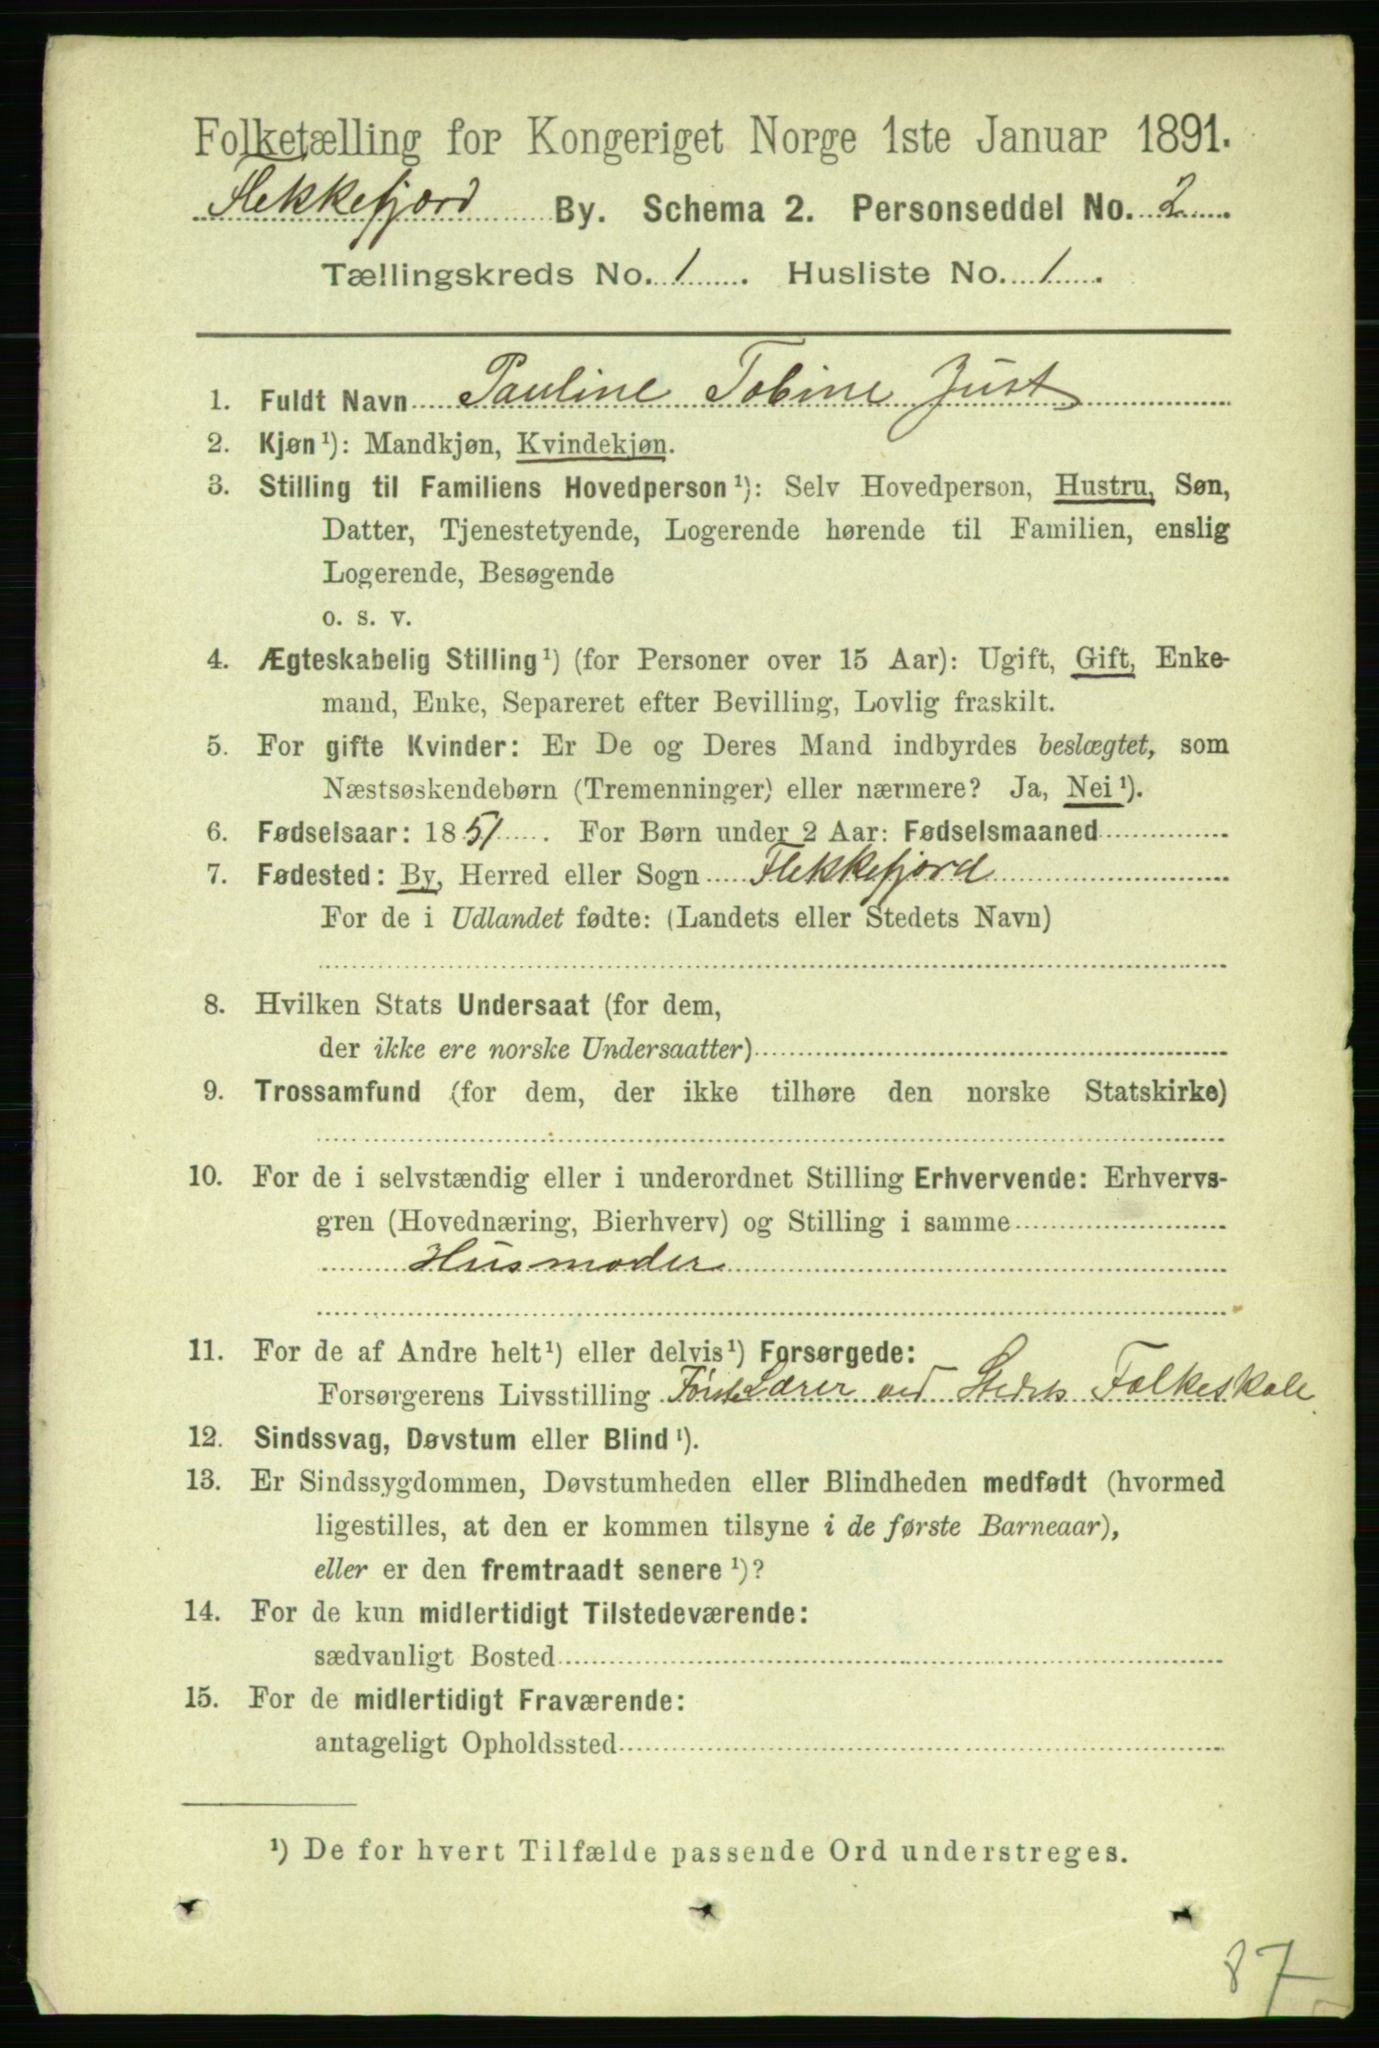 Folketælling for Kongeriget Norge 1ste Januar 1891.
Flekkefjord By. Schema 2. Personseddel No. 2
Tællingskreds No. 1. Husliste No. 1.
1. Fuldt Navn Pauline Tobine Just
2. Kjøn¹): Mandkjøn, Kvindekjøn.
3. Stilling til Familiens Hovedperson¹): Selv Hovedperson, Hustru, Søn,
Datter, Tjenestetyende, Logerende hørende til Familien, enslig
Logerende, Besøgende
o. s. v.
4. Ægteskabelig Stilling¹) (for Personer over 15 Aar): Ugift, Gift, Enke-
mand, Enke, Separeret efter Bevilling, Lovlig fraskilt.
5. For gifte Kvinder: Er De og Deres Mand indbyrdes beslægtet, som
Næstsøskendebørn (Tremenninger) eller nærmere? Ja, Nei¹).
6. Fødselsaar: 1851. For Børn under 2 Aar: Fødselsmaaned
7. Fødested: By, Herred eller Sogn Flekkefjord
For de i Udlandet fødte: (Landets eller Stedets Navn)
8. Hvilken Stats Undersaat (for dem,
der ikke ere norske Undersaatter)
9. Trossamfund (for dem, der ikke tilhøre den norske Statskirke)
10. For de i selvstændig eller i underordnet Stilling Erhvervende: Erhvervs-
gren (Hovednæring, Bierhverv) og Stilling i samme
Husmoder
11. For de af Andre helt¹) eller delvis¹) Forsørgede:
Forsørgerens Livsstilling Første Lærer ved Stedets Folkeskole
12. Sindssvag, Døvstum eller Blind¹).
13. Er Sindssygdommen, Døvstumheden eller Blindheden medfødt (hvormed
ligestilles, at den er kommen tilsyne i de første Barneaar),
eller er den fremtraadt senere¹)?
14. For de kun midlertidigt Tilstedeværende:
sædvanligt Bosted
15. For de midlertidigt Fraværende:
antageligt Opholdssted
¹) De for hvert Tilfælde passende Ord understreges.
87